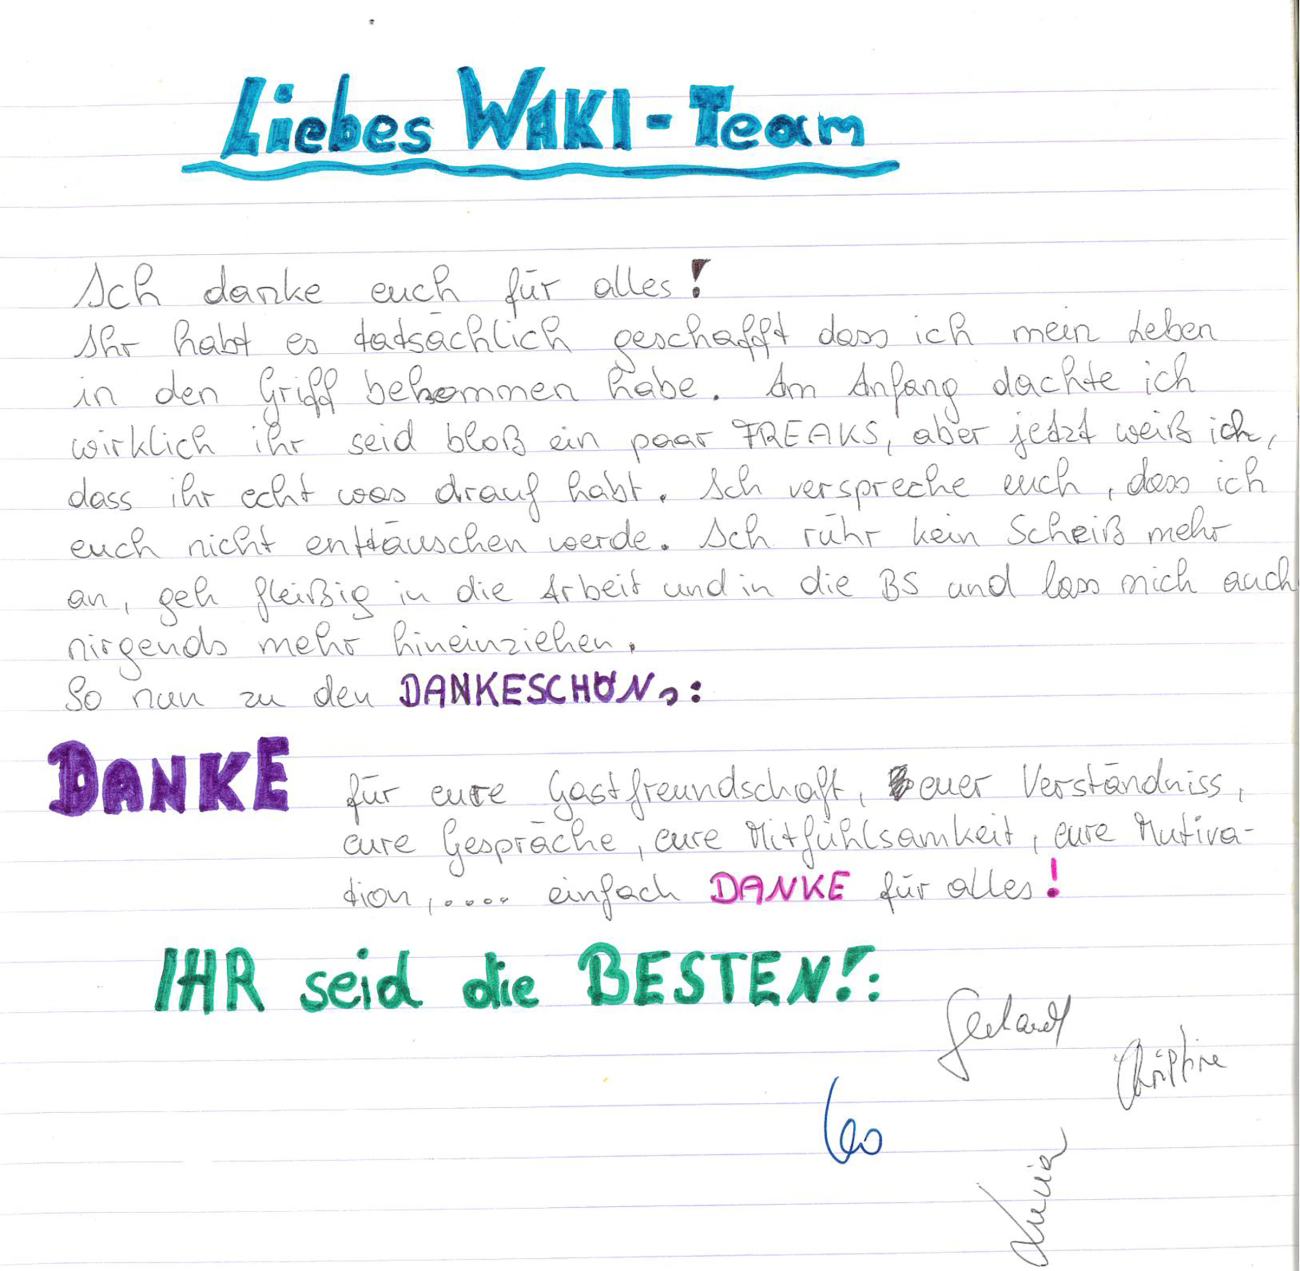 Liebes WAKI-Team
Ich danke euch für alles!
Ihr habt es tatsächlich geschafft dass ich mein Leben
in den Griff bekommen habe. Am Anfang dachte ich
wirklich ihr seid bloß ein paar FREAKS, aber jetzt weiß ich,
dass ihr echt was drauf habt. Ich verspreche euch, dass ich
euch nicht enttäuschen werde. Ich rühr kein Scheiß mehr
an, geh fleißig in die Arbeit und in die BS und lass mich auch
nirgends mehr hineinziehen.
So nun zu den DANKESCHÖN,:
DANKE für eure Gastfreundschaft, euer Verständniss,
eure Gespräche, eure Mitfühlsamkeit, eure Mutiva-
tion,.... einfach DANKE für alles!
IHR seid die BESTEN!:
Gerhard
Christine
Leo
Lucia